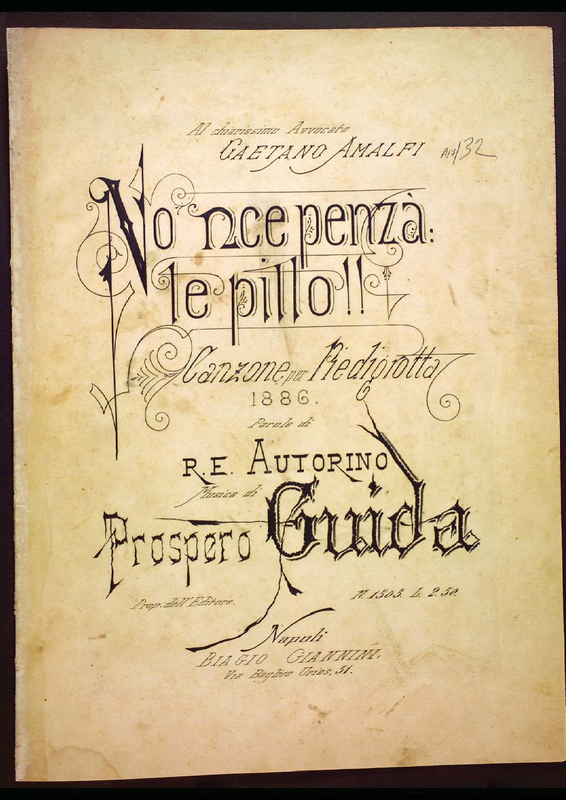 Al chiarissimo Avvocato
GAETANO AMALFI
32
No nce penzà:
le pillo!!
Canzone per Piedigrotta
1886.
Parole di
R. E. AUTORINO
Musica di
Prospero Guida
Prop. dell'Editore.
N. 1505. L. 2.50.
Napoli
BIAGIO GIANNINI.
Via Baglivo Uries, 51.